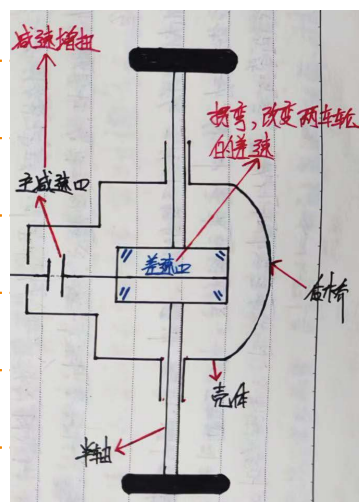 减速增扭
拐弯,改变两车轮
的差速
主减速口
差速口
后桥
壳体
半轴